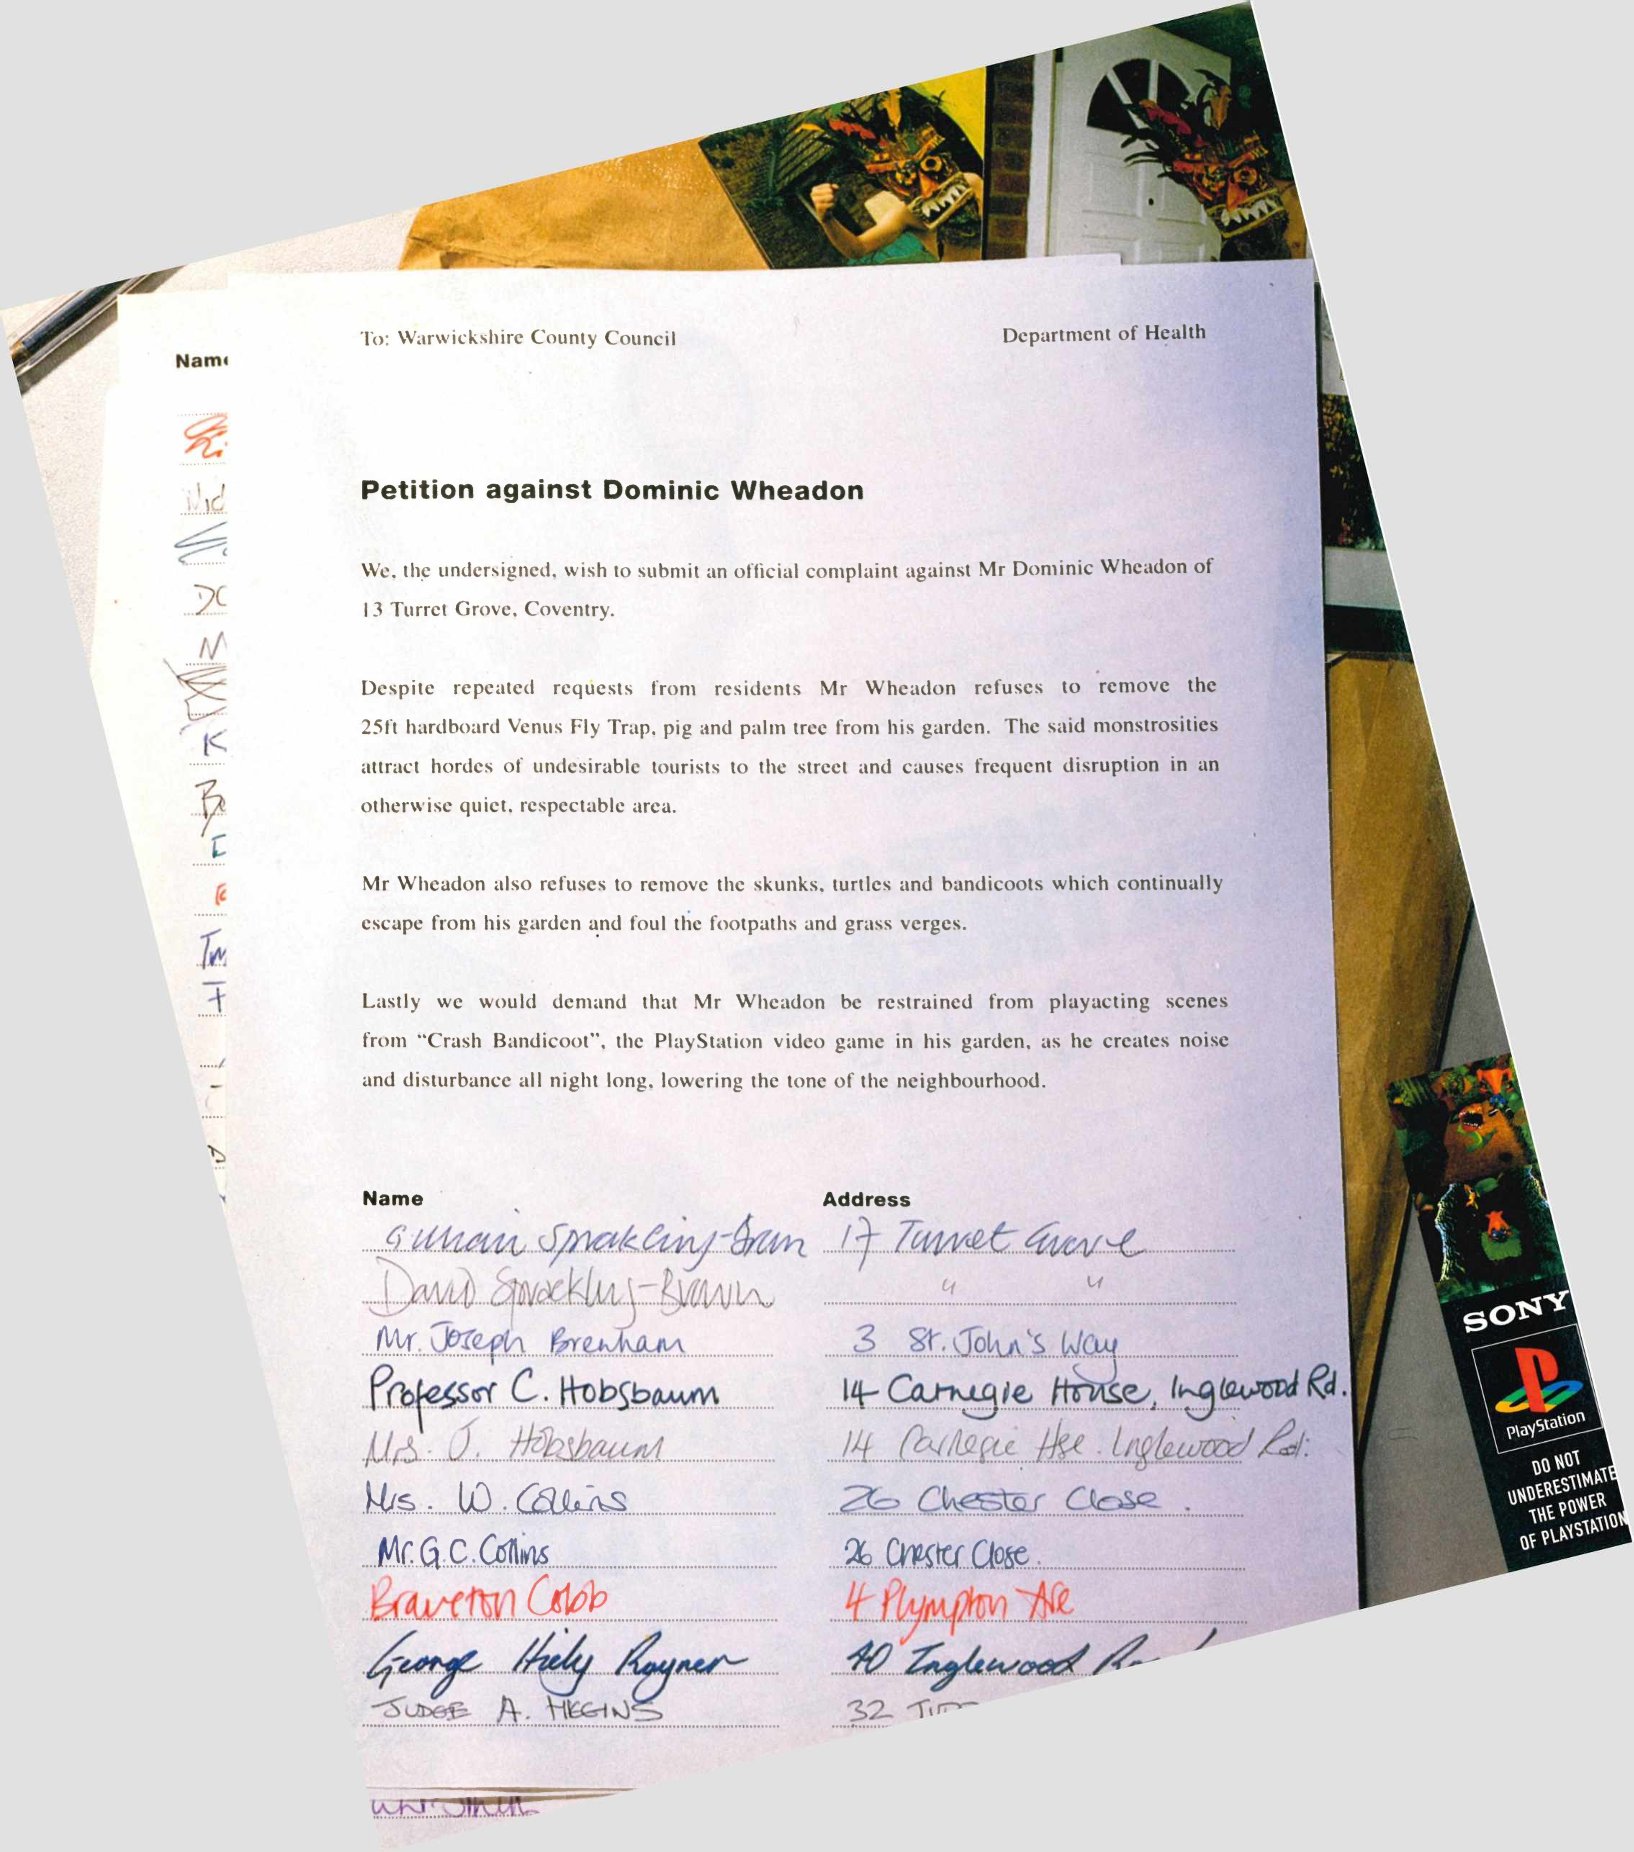 To: Warwickshire County Council Department of Health
Petition against Dominic Wheadon
We, the undersigned, wish to submit an official complaint against Mr Dominic Wheadon of
13 Turret Grove, Coventry.
Despite repeated requests from residents Mr Wheadon refuses to remove the
25ft hardboard Venus Fly Trap, pig and palm tree from his garden. The said monstrosities
attract hordes of undesirable tourists to the street and causes frequent disruption in an
otherwise quiet, respectable area.
Mr Wheadon also refuses to remove the skunks, turtles and bandicoots which continually
escape from his garden and foul the footpaths and grass verges.
Lastly we would demand that Mr Wheadon be restrained from playacting scenes
from “Crash Bandicoot”, the PlayStation video game in his garden, as he creates noise
and disturbance all night long, lowering the tone of the neighbourhood.
Name Address
Gillian Sprakling-Brown 17 Turret Grove
David Sprackling-Brown " "
Mr. Joseph Brenham 3 St. John's Way
Professor C. Hobsbaum 14 Carnegie House, Inglewood Rd.
Mrs. J. Hobsbaum 14 Carnegie Hse. Inglewood Rd.
Mrs. W. Collins 26 Chester Close.
Mr. G.C. Collins 26 Chester Close.
Braveton Cobb 4 Plympton Ave
George Hiely Rayner 40 Inglewood
JUDGE A. HIGGINS 32
Name
SONY
PlayStation
DO NOT
UNDERESTIMATE
THE POWER
OF PLAYSTATION